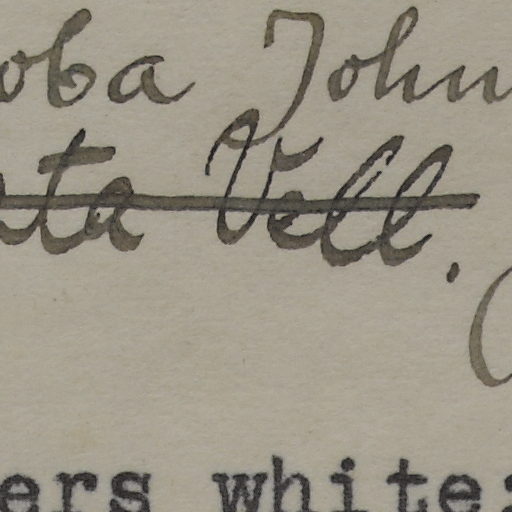 oba John
ata Vell.
ers white: